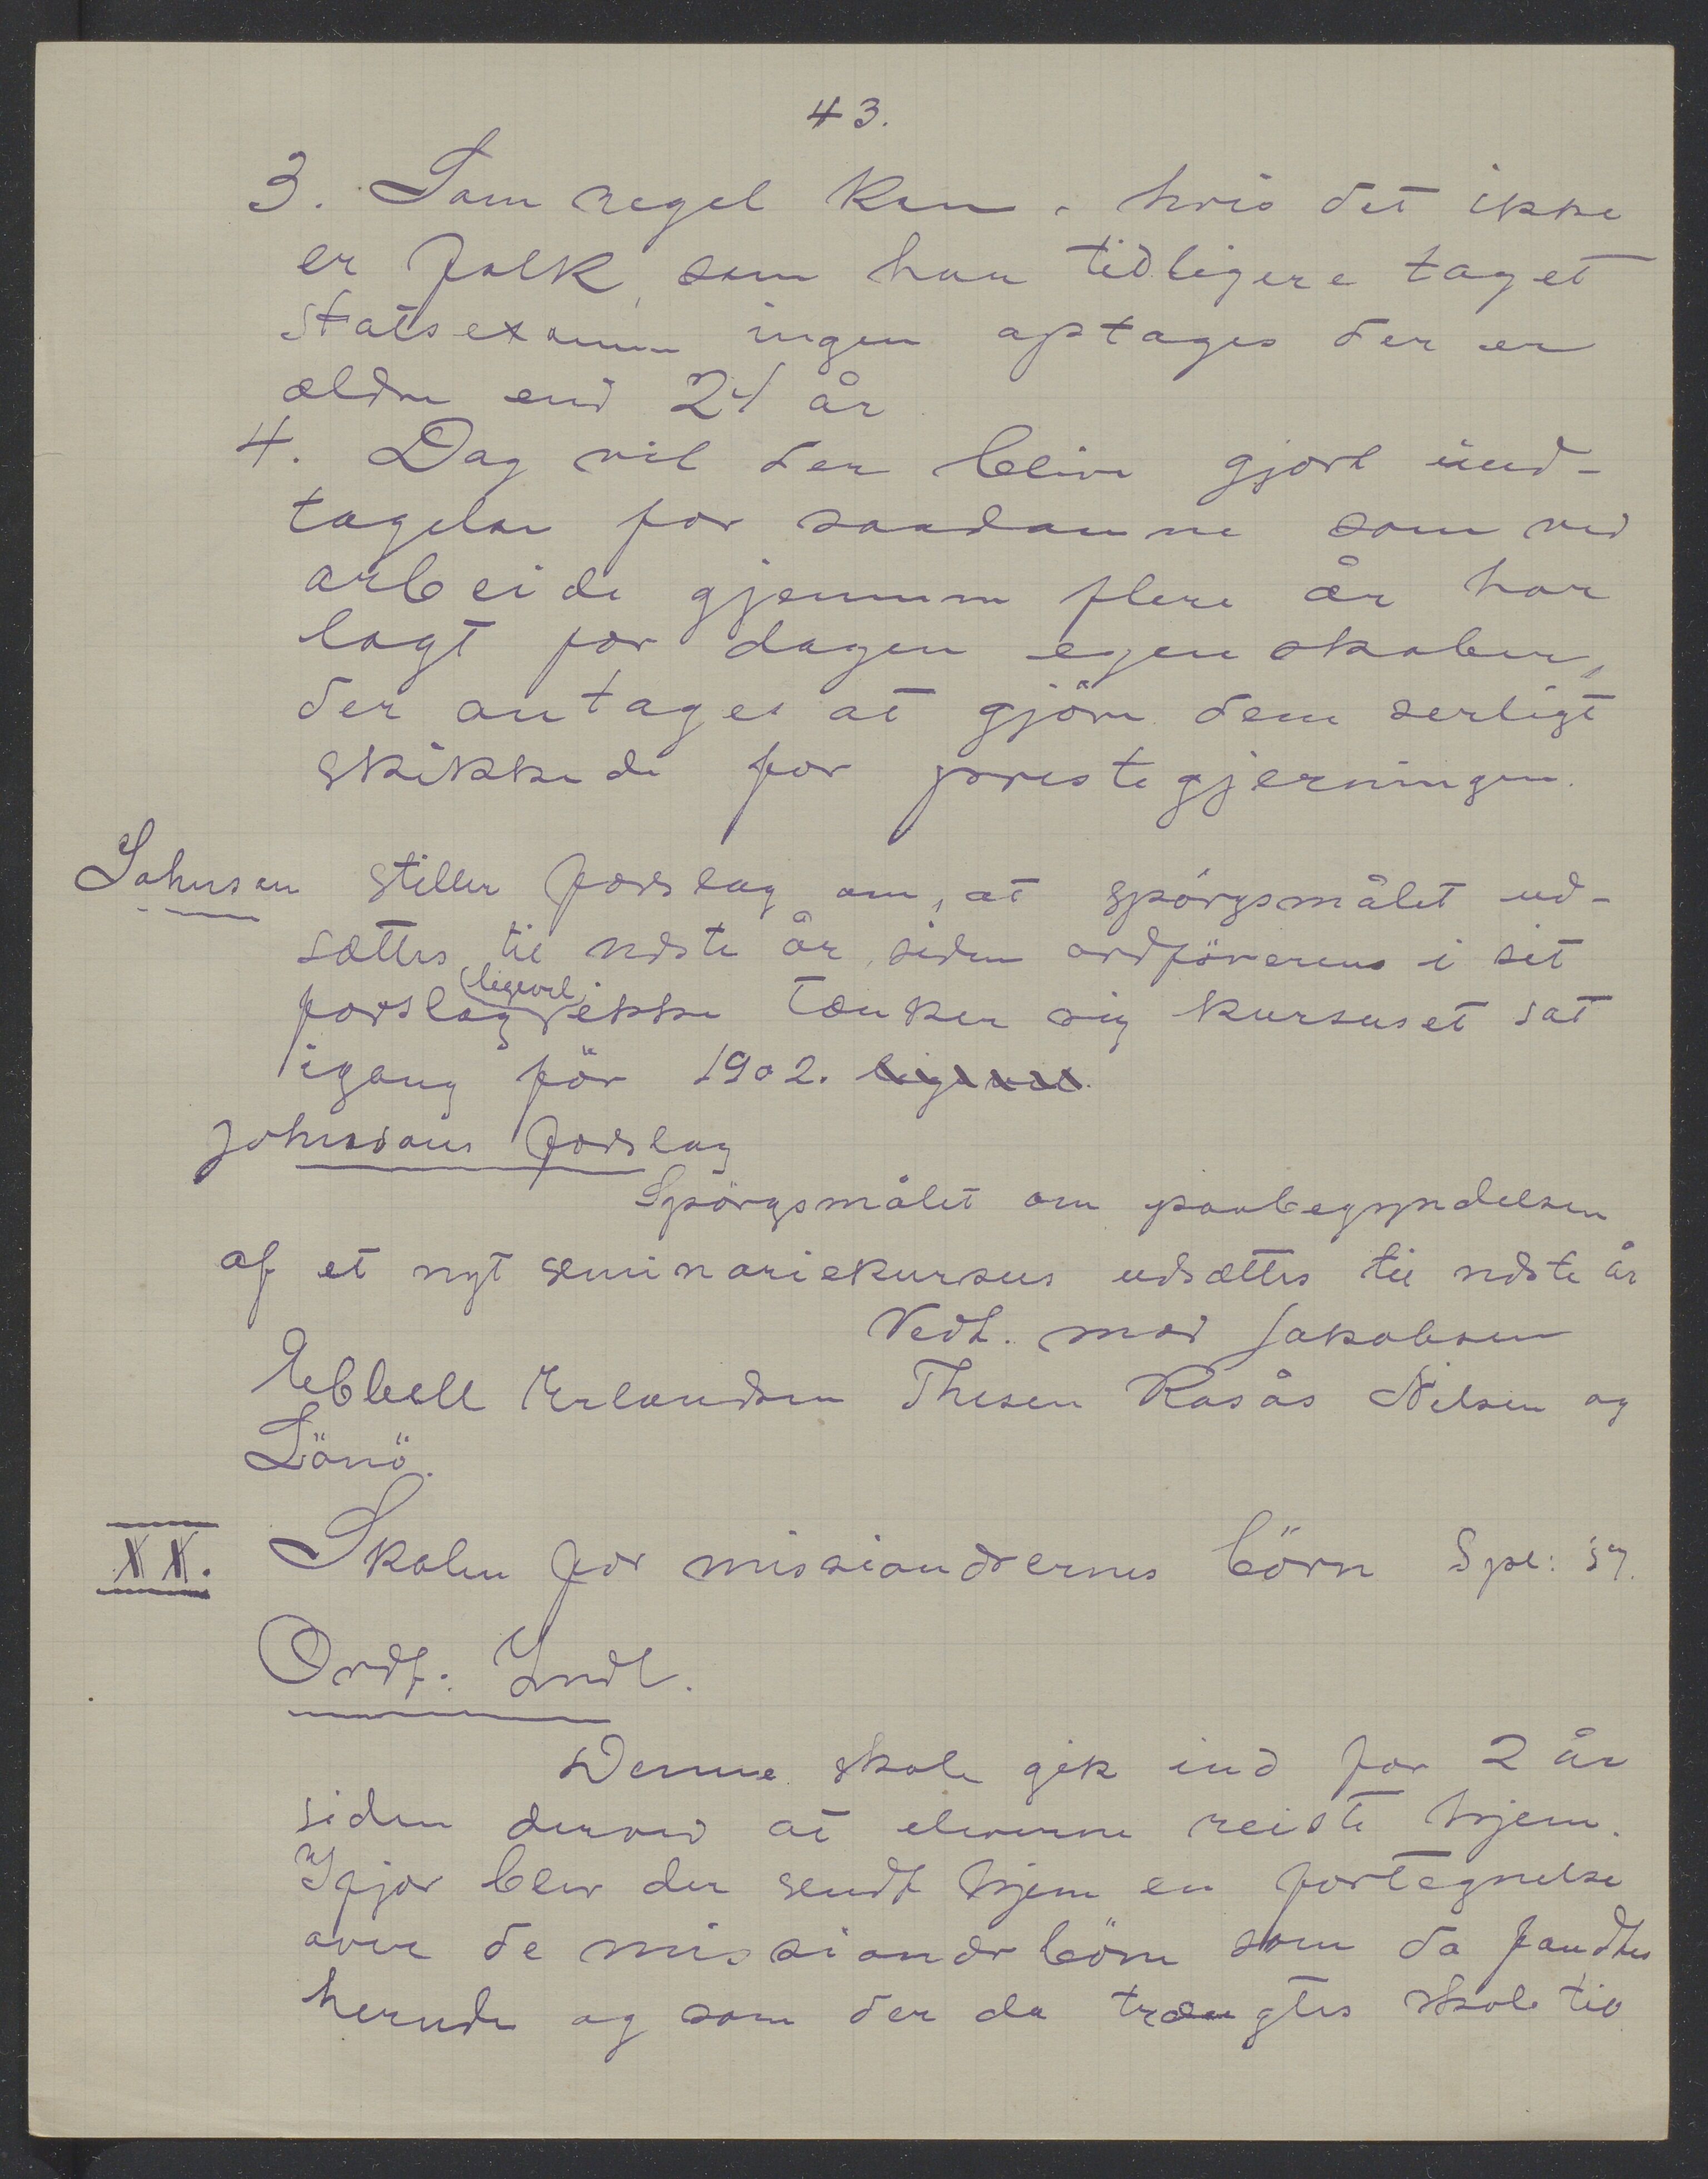 43.
3. Som regel kan, hvis det ikke
er folk, som har tidligere taget
statsexamen ingen optages der er
ældre end 24 år
4. Dog vil der blive gjort und-
tagelse for saadanne som ved
arbeide gjennem flere år har
lagt for dagen egenskaber,
der antages at gjöre dem serligt
skikkede for prestegjerningen.
Johnsen stiller forslag om, at spörgsmålet ud-
sættes til næste år, siden ordförerens i sit
forslag ligevel ikke tænker sig kursuset sat
igang för 1902. ligevel
Johnsons forslag
Spörgsmålet om paabegyndelsen
af et nyt seminariekursus udsættes til næste år
Vedt. mod Jakobsen
Ebbell Erlandsen Thesen Rosås Nilsen og
Lönö.
XX. Skolen for missionærernes börn Spl: 57.
Ordf. Indl.
Denne skole gik ind for 2 år
siden derved at eleverne reiste hjem.
Ifjor blev der sendt hjem en fortegnelse
over de missionærbörn som da fandtes
herude og som der da trængtes skole til